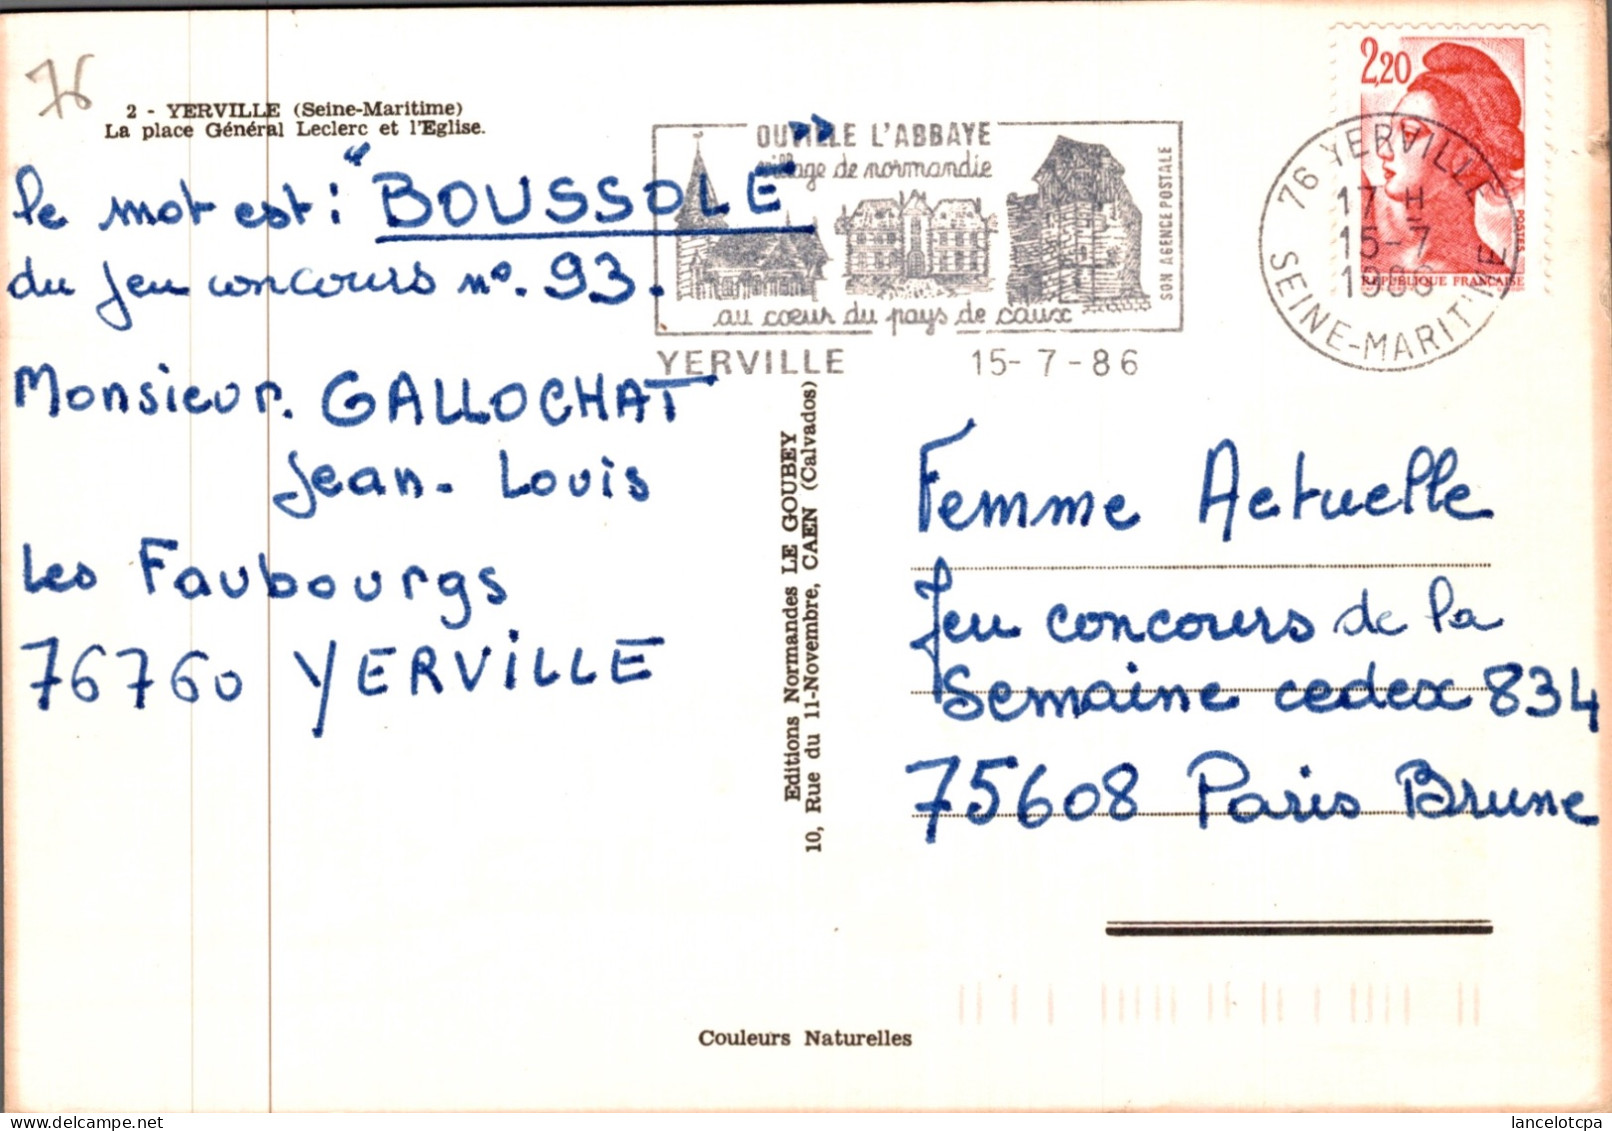 76
2 - YERVILLE (Seine-Maritime)
La place Général Leclerc et l'Eglise.
le mot est : "BOUSSOLE"
du jeu concours n°. 93.
Monsieur. GALLOCHAT
Jean-Louis
Les Faubourgs
76760 YERVILLE
OUVILLE L'ABBAYE
village de normandie
SON AGENCE POSTALE
au cœur du pays de caux
YERVILLE 15-7-86
2,20
POSTES
REPUBLIQUE FRANÇAISE
76 YERVILLE
17 H
15-7
1986
SEINE-MARITIME
Editions Normandes LE GOUBEY
10, Rue du 11-Novembre, CAEN (Calvados)
Femme Actuelle
Jeu concours de la
Semaine cedex 834
75608 Paris Brune
Couleurs Naturelles
lancelotcpa